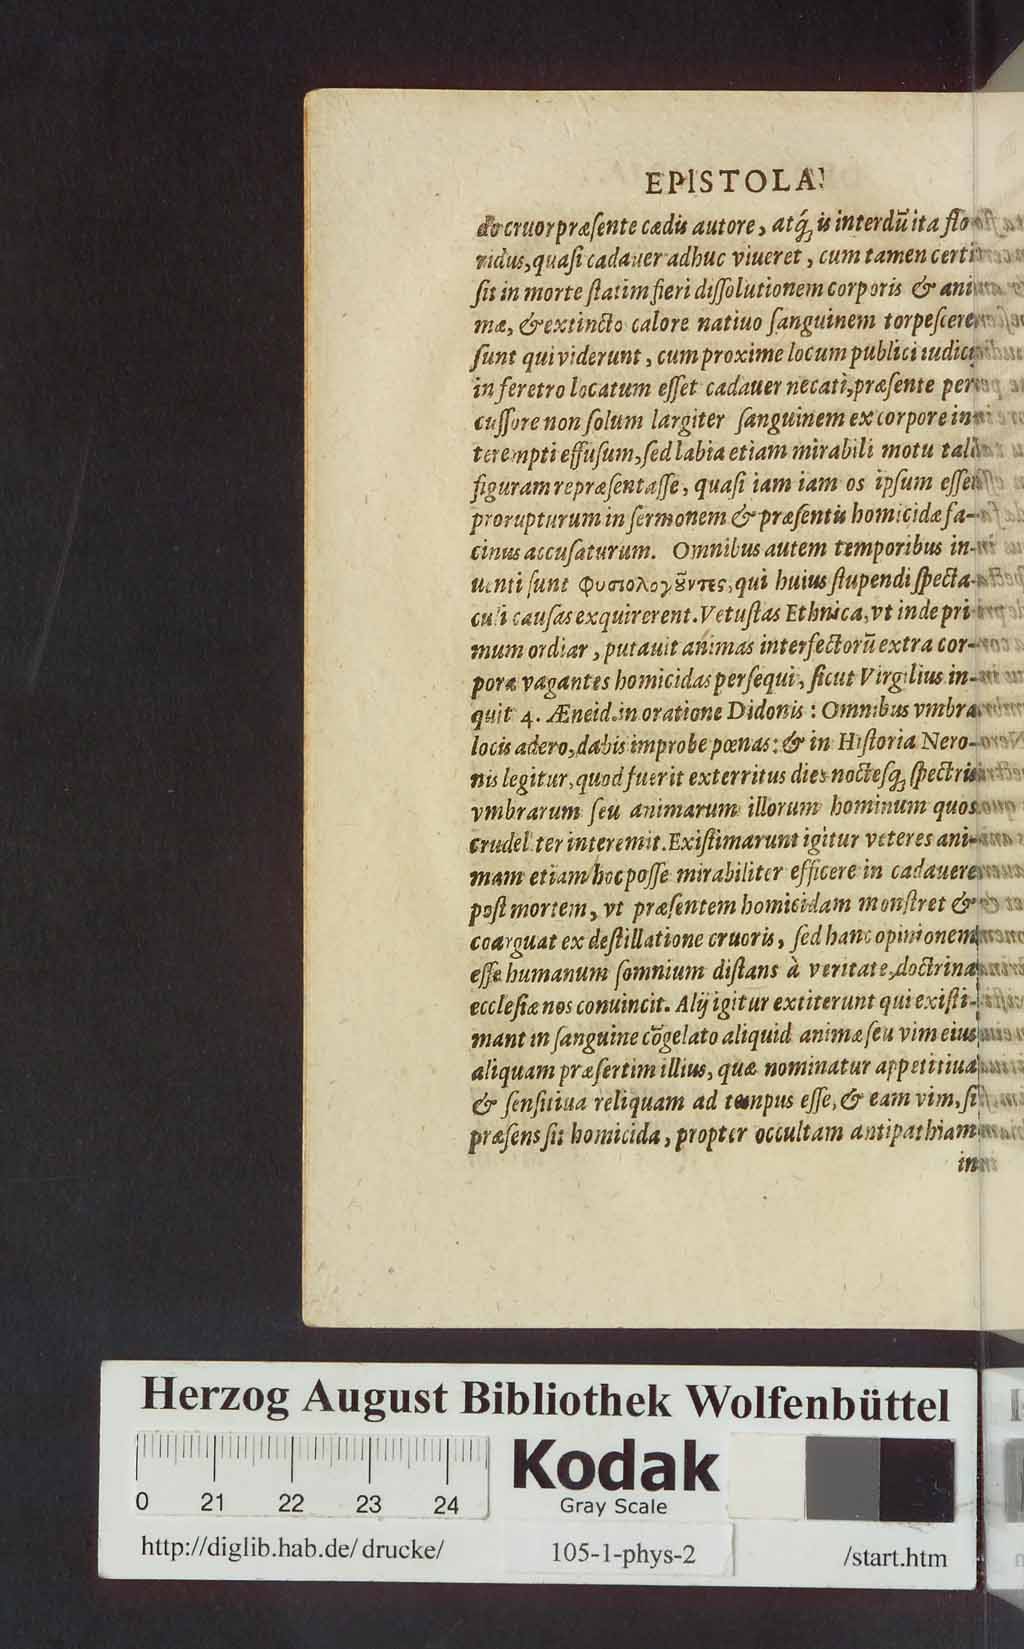 EPISTOLA
do cruor præſente cædis autore, atq́ꝫ is interdū ita flo
ridus, quaſi cadauer adhuc viueret, cum tamen certū
ſit in morte ſtatim fieri diſſolutionem corporis & ani
mæ, & extincto calore natiuo ſanguinem torpeſcere,
ſunt qui viderunt, cum proxime locum publici iudicij
in feretro locatum eſſet cadauer necati, præſente per
cuſſore non ſolum largiter ſanguinem ex corpore in-
terempti effuſum, ſed labia etiam mirabili motu talē
figuram repræſentaſſe, quaſi iam iam os ipſum eſſet
prorupturum in ſermonem & præſentis homicidæ fa-
cinus accuſaturum. Omnibus autem temporibus in-
uenti ſunt Φυσιολογοῦντες, qui huius ſtupendi ſpecta-
culi cauſas exquirerent. Vetuſtas Ethnica, vt inde pri
mum ordiar, putauit animas interfectorū extra cor-
pora vagantes homicidas perſequi, ſicut Virgilius in-
quit 4. Æneid. in oratione Didonis: Omnibus vmbra
locis adero, dabis improbe pœnas: & in Hiſtoria Nero-
nis legitur, quod fuerit exterritus dies noctesq́ꝫ ſpectris
vmbrarum ſeu animarum illorum hominum quos
crudeliter interemit. Exiſtimarunt igitur veteres ani-
mam etiam hoc poſſe mirabiliter efficere in cadauere
poſt mortem, vt præſentem homicidam monſtret &
coarguat ex deſtillatione cruoris, ſed hanc opinionem
eſſe humanum ſomnium diſtans à veritate, doctrina
eccleſiæ nos conuincit. Alij igitur extiterunt qui exiſti-
mant in ſanguine cōgelato aliquid animæ ſeu vim eius
aliquam præſertim illius, quæ nominatur appetitiua
& ſenſitiua reliquam ad tempus eſſe, & eam vim, ſi
præſens ſit homicida, propter occultam antipathiam
in
Herzog August Bibliothek Wolfenbüttel
0 21 22 23 24
Kodak
Gray Scale
http://diglib.hab.de/drucke/ 105-1-phys-2 /start.htm